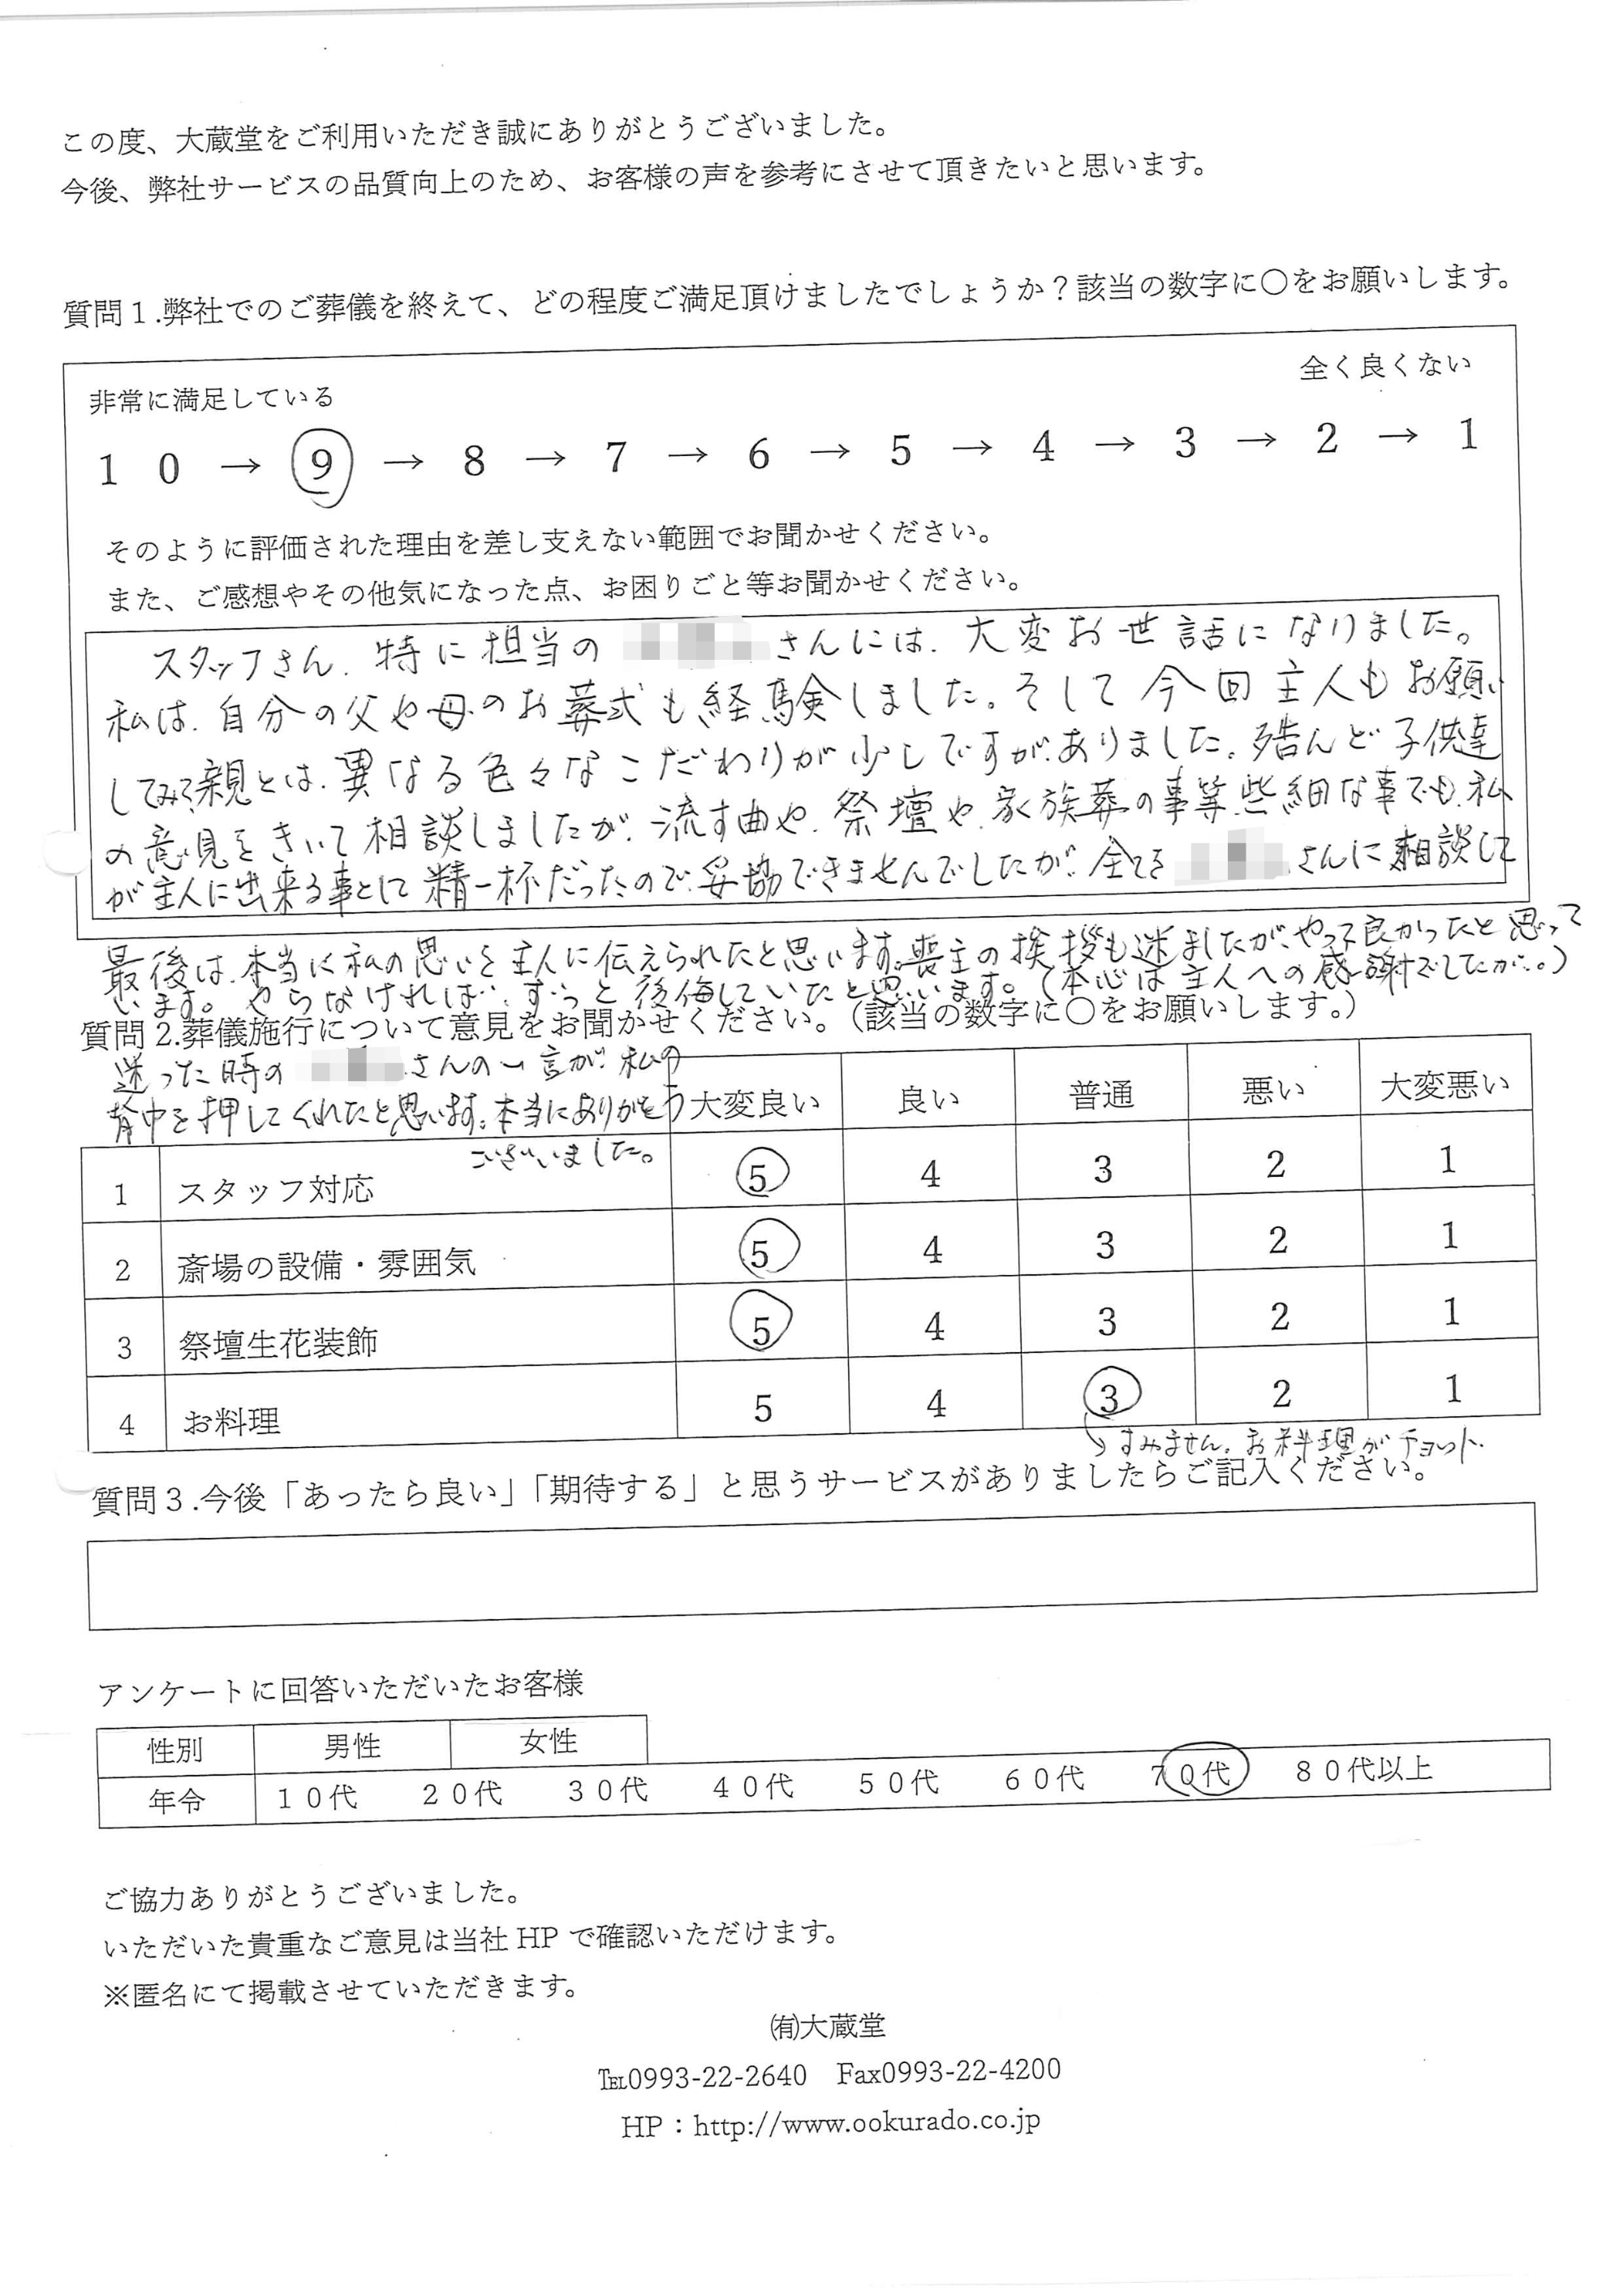 この度、大蔵堂をご利用いただき誠にありがとうございました。
今後、弊社サービスの品質向上のため、お客様の声を参考にさせて頂きたいと思います。
質問１.弊社でのご葬儀を終えて、どの程度ご満足頂けましたでしょうか？該当の数字に〇をお願いします。
非常に満足している 全く良くない
１０ → 9 → 8 → 7 → 6 → 5 → 4 → 3 → 2 → 1
そのように評価された理由を差し支えない範囲でお聞かせください。
また、ご感想やその他気になった点、お困りごと等お聞かせください。
スタッフさん、特に担当の さんには、大変お世話になりました。
私は、自分の父や母のお葬式も経験しました。そして今回主人もお願い
してみて、親とは、異なる色々なこだわりが少しですが、ありました。殆んど子供達
の意見をきいて相談しましたが、流す曲や、祭壇や、家族葬の事等、些細な事でも、私
が主人に出来る事として精一杯だったので、妥協できませんでしたが、全てを さんに相談して
最後は、本当に私の思いを主人に伝えられたと思います。喪主の挨拶も迷ましたが、やって良かったと思って
います。やらなければ、ずっと後悔していたと思います。(本心は主人への感謝でしたが…。)
質問2.葬儀施行について意見をお聞かせください。（該当の数字に〇をお願いします。）
迷った時の さんの一言が、私の
背中を押してくれたと思います。本当にありがとう
ございました。
大変良い 良い 普通 悪い 大変悪い
1 スタッフ対応 5 4 3 2 1
2 斎場の設備・雰囲気 5 4 3 2 1
3 祭壇生花装飾 5 4 3 2 1
4 お料理 5 4 3 2 1
↳すみません、お料理がチョット.
質問３.今後「あったら良い」「期待する」と思うサービスがありましたらご記入ください。
アンケートに回答いただいたお客様
性別 男性 女性
年令 １０代 ２０代 ３０代 ４０代 ５０代 ６０代 ７０代 ８０代以上
ご協力ありがとうございました。
いただいた貴重なご意見は当社 HP で確認いただけます。
※匿名にて掲載させていただきます。
㈲大蔵堂
℡0993-22-2640 Fax0993-22-4200
HP：http://www.ookurado.co.jp